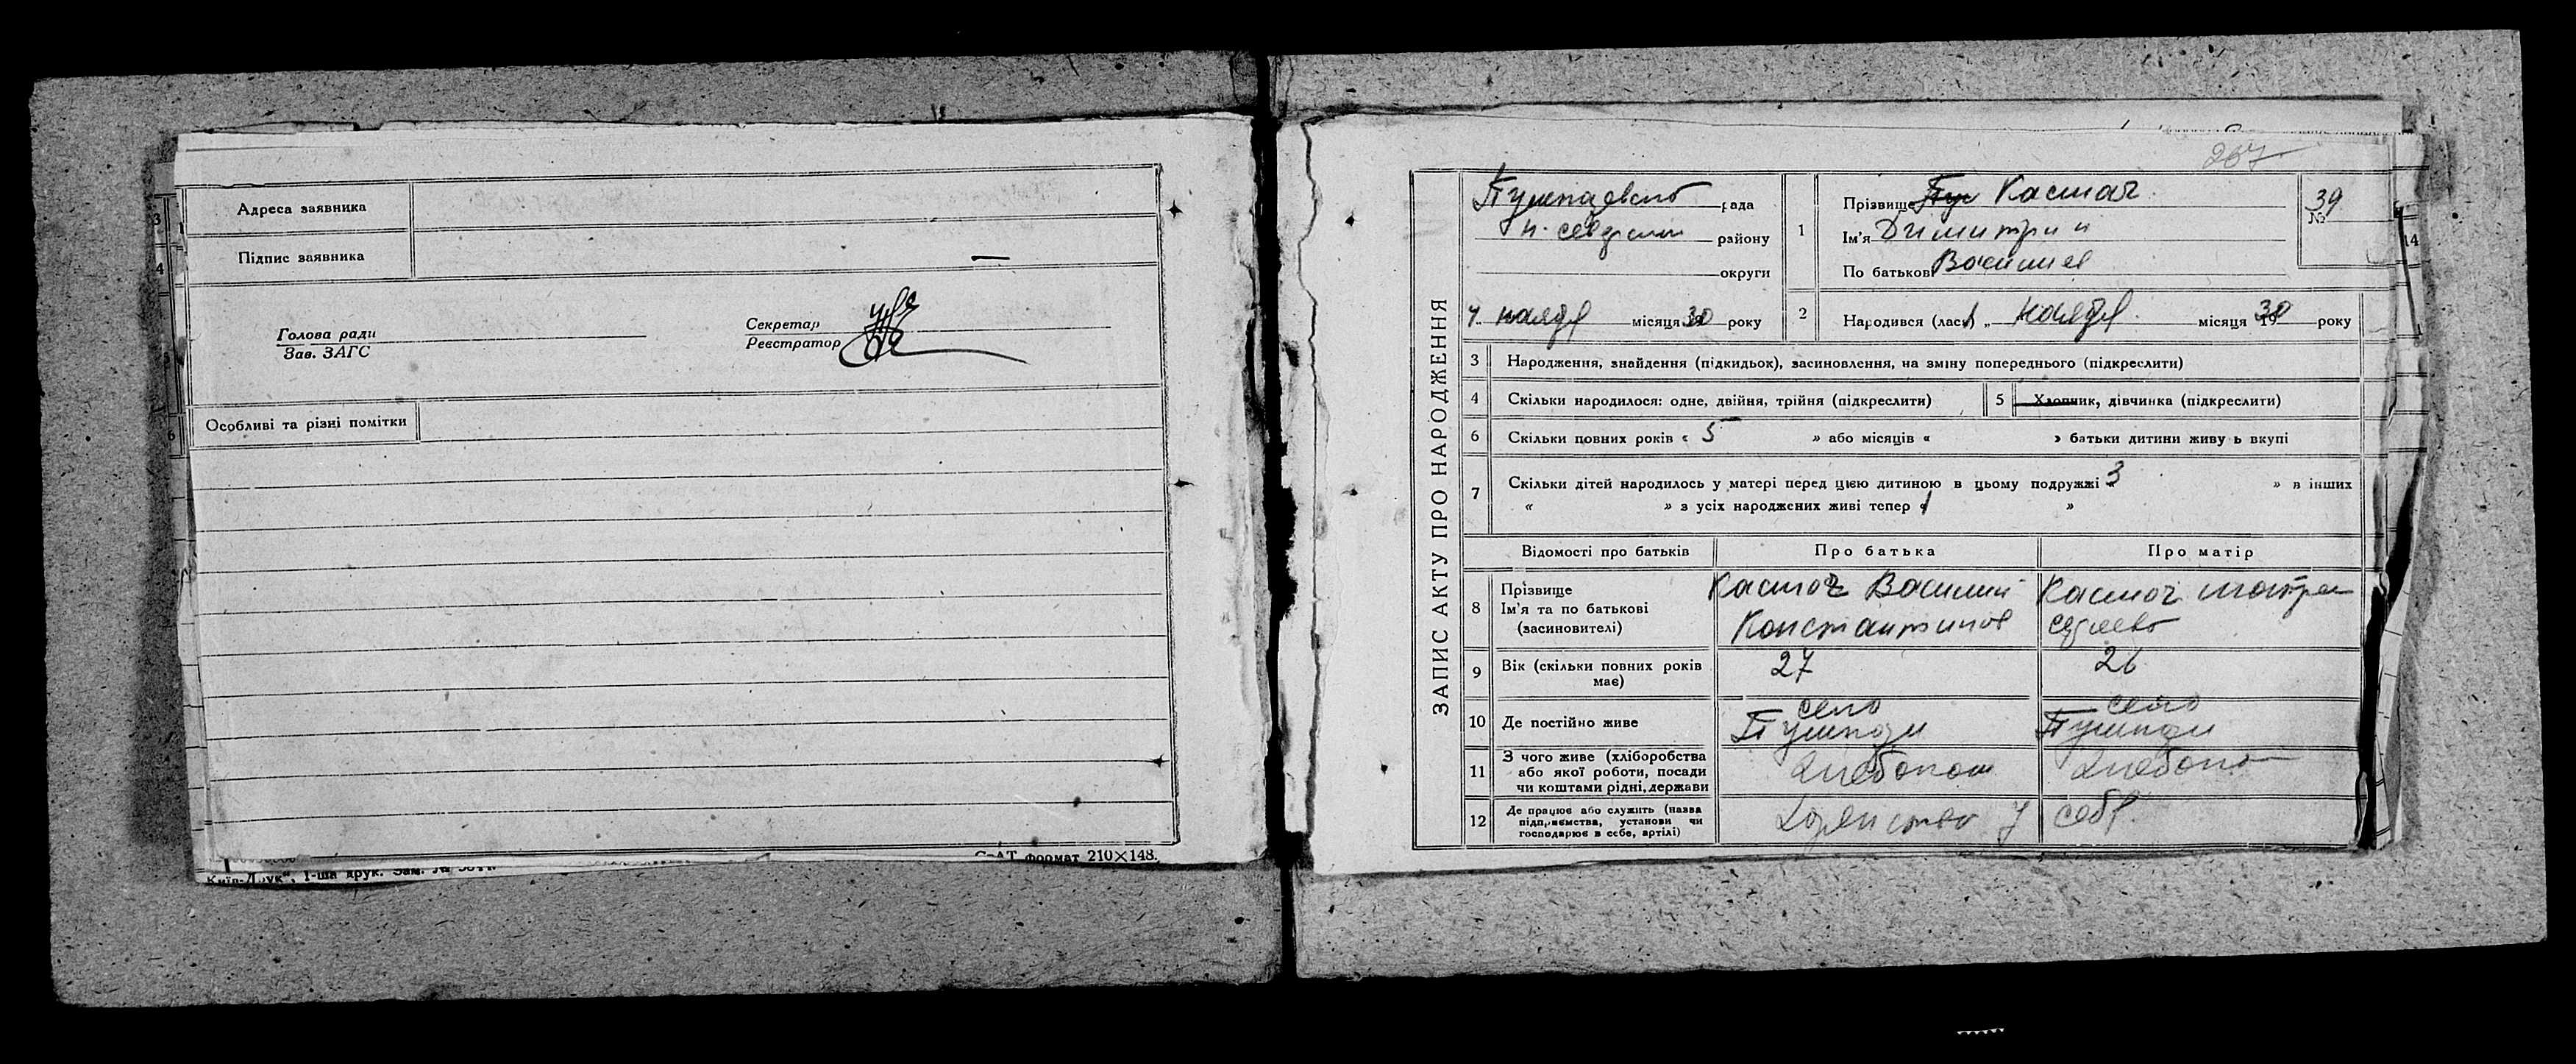 Адреса заявника
Підпис заявника
Голова ради
Зав. ЗАГС
Секретар
Реєстратор
Особливі та різні помітки
формат 210×148.
Київ-Друк", 1-ша друк. Зам. №
267
ЗАПИС АКТУ ПРО НАРОДЖЕННЯ
рада
району
округи
4 ноября місяця 30 року
1
Прізвище Кастач
Ім'я Димитрий
По батькові Василиев
39
№
2 Народився (лась) „ 1 ноября місяця 1930 року
3 Народження, знайдення (підкидьок), засиновлення, на зміну попереднього (підкреслити)
4 Скільки народилося: одне, двійня, трійня (підкреслити)
5 Хлопчик, дівчинка (підкреслити)
6 Скільки повних років « 5 » або місяців « » батьки дитини живу ь вкупі
7 Скільки дітей народилось у матері перед цією дитиною в цьому подружжі « 3 » в інших
« » з усіх народжених живі тепер « 1 »
Відомості про батьків Про батька Про матір
8 Прізвище
Ім'я та по батькові
(засновителі)
Кастач Василий
Константинов
Кастач
9 Вік (скільки повних років має) 27 26
10 Де постійно живе
село
село
11 З чого живе (хліборобства
або якої роботи, посади
чи коштами рідні, держави
Хлебопаш
Хлебопа
12 Де працює або служить (назва
підприємства, установи чи
господарює в себе, артілі)
у себя
14